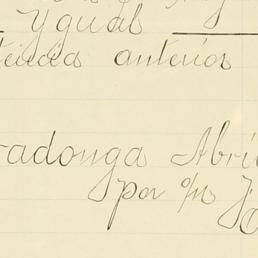 Ygual
teicea anterior
adonga Abri
por o/n